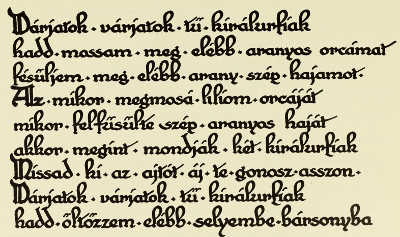 Várjatok · várjatok · tü · kírálurfíak
hadd · massam · meg · elébb · aranyos orcámat
fésüljem · meg · elébb · arany · szép · hajamot ·
Az · mikor · megmosá · liliom · orcáját
mikor · felfésülte szép · aranyos haját
akkor · megint · mondják · két · kírálurfíak
Nissad · ki · az · ajtót · áj · te · gonosz · asszon ·
Várjatok · várjatok · tü · kírálurfíak
hadd · öltözzem · elébb · selyembe · bársonyba